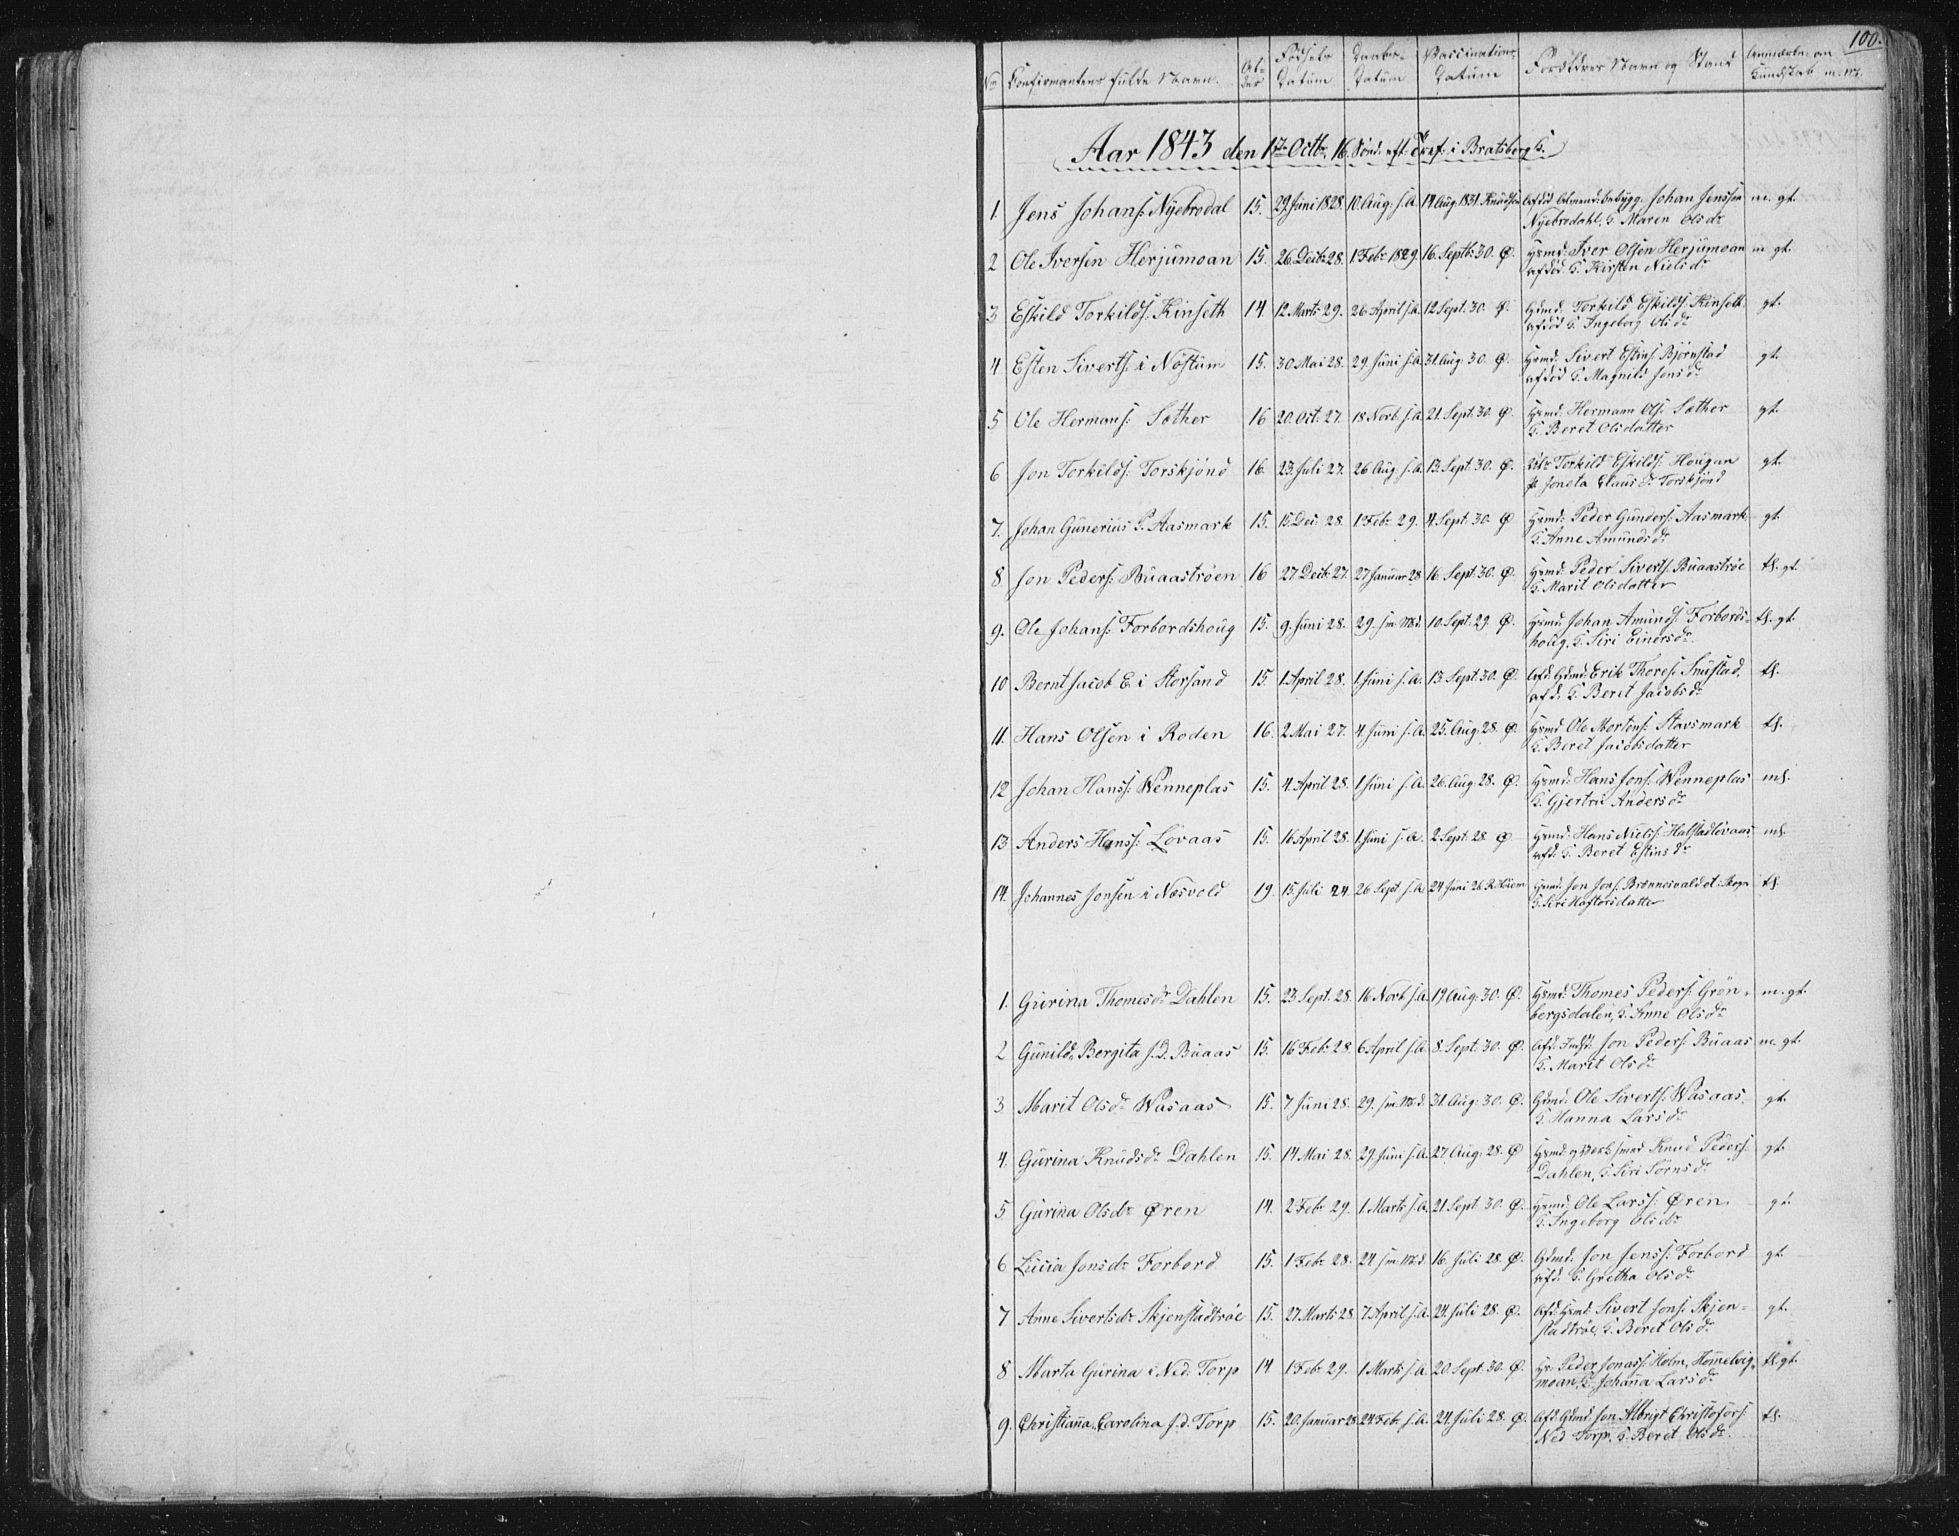 100.
No Confirmantens fulde Navn. Alder Fødsels Datum Daabs Datum Vaccinations Datum Forældres Navn og Stand Anmærkn. om Kundskab m. m.
Aar 1843 den 1te Octbr. 16. Sönd. eft. Tref. i Bratsberg K.
1. Jens Johans: Nyebrodal 15. 29. Juni 1828. 10 Aug. s. A. 14 Aug. 1831. Knudsen Johan Jenssen m. gt.
Nyebrodahl, H. Maren Olsdr
2 Ole Iversen Herjumoan 15. 26. Decbr 28. 1 Febr 1829. 16. Septbr 30. Ø. Hsmd: Iver Olsen Herjumoan m gt.
afdöd H. Kirsten Nielsdr
3 Eskild Torkilds. Kinseth 14 12 Marts 29. 26 April s.A. 12 Sept. 30. Ø. Gdmd: Torkild Eskilds. Kinseth gt.
afdöd H. Ingeborg Olsdr
4 Esten Siverts. i Nöstum 15. 30 Mai 28. 29. Juni s.A. 31. Aug. 30 Ø. Hsmd: Sivert Estins: Björnstad gt.
afdöd H. Magnild Jonsdr
5 Ole Hermans: Sæther 16 20. Oct. 27. 18 Novb. s.A. 21. Sept. 30. Ø. Hsmd: Hermann Ols: Sæther gt.
H. Beret Olsdatter
6 Jon Torkilds: Torskjönd 16. 23. Juli 27. 26 Aug. s.A. 13. Sept. 30. Ø. Torkild Eskilds: Hougan gt.
Joneta Clausdr Torskjönd
7. Johan Gunerius P. Aasmark 15. 15. Dec. 28. 1 Febr 29. 4 Sept. 30. Ø Hsmd: Peder Gunders: Aasmark gt.
H. Anne Amundsdr
8. Jon Peders: Buaaströen 16 27 Decb. 27. 27 Januar 28 16. Sept. 30. Ø. Hsmd: Peder Siverts. Buaaströe tl. gt.
H. Marit Olsdatter
9. Ole Johans: Forbordshoug 15. 9. Juni 28. 29. sm. Md. 10. Sept. 29. Ø. Hsmd. Johan Amunds: Forbords- tl. gt.
houg, H. Siri Einersdr
10 Bernt Jacob E. i Storsand 15. 1 April 28. 1 Juni s.A. 13. Sept. 30. Ø. Afd. Gdmd. Erik Thores. Snustad, tl.
afd. H. Beret Jacobsdr
11. Hans Olsen i Roden 16. 2. Mai 27. 4. Juni s.A. 25. Aug. 28. Ø. Hsmd Ole Mortens: Stavsmark tl.
H. Beret Jacobsdatter
12 Johan Hanss: Wenneplas 15. 4. April 28. 1 Juni s.A. 26. Aug. 28. Ø. Hsmd: Hans Jons. Wenneplas ml.
H. Gjertru Andersdr
13 Anders Hanss: Lovaas 15. 16 April 28. 1. Juni s.A. 2. Sept. 28. Ø Hsmd: Hans Niels: Halstadlovaas ml.
afd. H. Beret Estinsdr
14. Johannes Jonsen i Næsvold 19. 15. Juli 24. 26 Sept s.A. 24 Juni 26. Hsmd. Jon Jons. tl.
H. Siri Haftorsdatter
1. Gurina Thomesdr Dahlen 15. 23. Sept. 28. 16 Novb. s.A. 19 Aug. 30. Ø. Hsmd: Thomes Peders: Grön- m. gt.
bergsdalen, H. Anne Olsdr
2 Gunild Bergita J.D. Buaas 15. 16 Feb. 28. 6 April s.A. 8. Sept. 30. Ø. Afd. Jon Peders: Buaas m. gt.
H. Marit Olsdr
3 Marit Olsdr Wasaas 15. 7 Juni 28. 29. sm. Md. 31. Aug. 30. Ø. Gdmd: Ole Siverts. Wasaas, gt.
H. Hanna Larsdr
4. Gurina Knudsdr Dahlen 15. 14 Mai 28. 29. Juni s.A. 27. Aug. 28. Ø Hsmd. og Knud Peders: gt.
Dahlen, H. Siri Sörnsdr
5. Gurina Olsdr Øren 14. 2 Febr 29. 1. Marts s.A. 21. Sept. 30. Ø. Hsmd: Ole Larss: Øren. gt.
H. Ingeborg Olsdr
6 Lucia Jonsdr Forbord 15. 1 Febr 28. 24 sm. Md. 16. Juli 28. Ø. Gdmd: Jon Jenss: Forbord gt.
afd. H. Gretha Olsdr
7 Anne Sivertsdr Skjenstadtröe 15. 27 Marts 28 7 April s.A. 24. Juli 28. Ø. Afd. Hsmd: Sivert Jons: Skjen- gt.
stadtröe, H. Beret Olsdr
8 Marta Gurina i Ned. Torp 14 1 Febr 29. 1 Marts s.A. 20. Sept. 30. Ø. Peder Jonass: Holm, Hommelvig- tl. gt.
moan, H. Johanna Larsdr
9. Christiana Carolina J.d. Torp 15. 20. Januar 28. 24 Feb. s.A. 24. Juli 28. Ø. Afd. Gdmd. Jon Albrigt Christofors: tl.
Ned Torp. H. Beret Olsdr